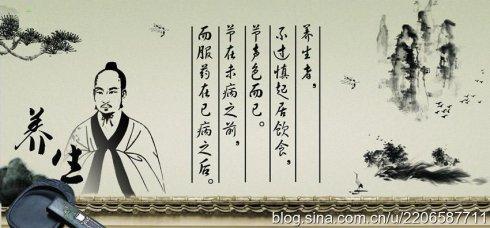 养生者，
不过慎起居饮食，
节声色而已。
节在未病之前，
而服药在已病之后。
养生
blog.sina.com.cn/u/2206587711